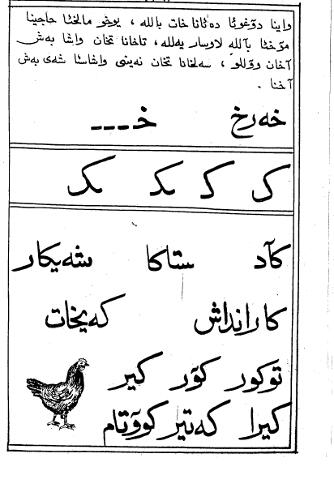 واینا دەئانا خات بالله ، مالخئا حاجینا
بآلله لاوسار یەلله، تاخانا تخان واشا بەش
آخان سەلخانا تخان نەینی واشاستا شەی بەش
آخنا .
خەرخ خـ ـ ـ ـ
ک ک ک ک
کآد ستاکا شەیکار
کارانداش کەیخات
توکور کوٓر کیر
کیرا کەتیر کووٓتام